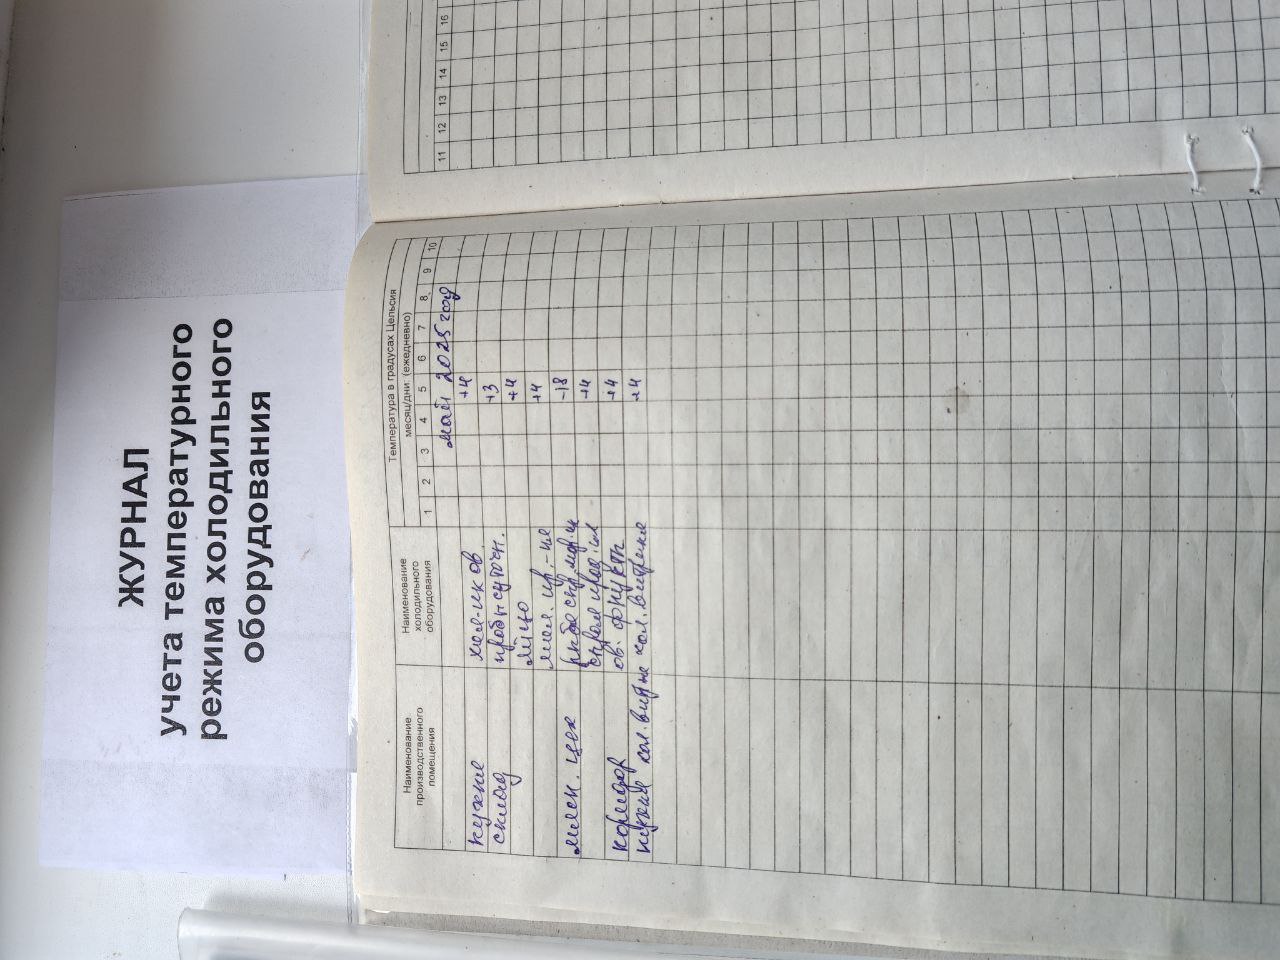 ЖУРНАЛ
учета температурного
режима холодильного
оборудования
Наименование производственного помещения
Наименование холодильного оборудования
Температура в градусах Цельсия
месяц/дни: (ежедневно)
1 2 3 4 5 6 7 8 9 10
май 2025 год
кухня +4
склад пробы суточн. +3
яйцо +4
мол. пр-ция +4
мясн. цех -18
+4
коридор ов. фрукты +4
кухня хол. витрина +4
11 12 13 14 15 16